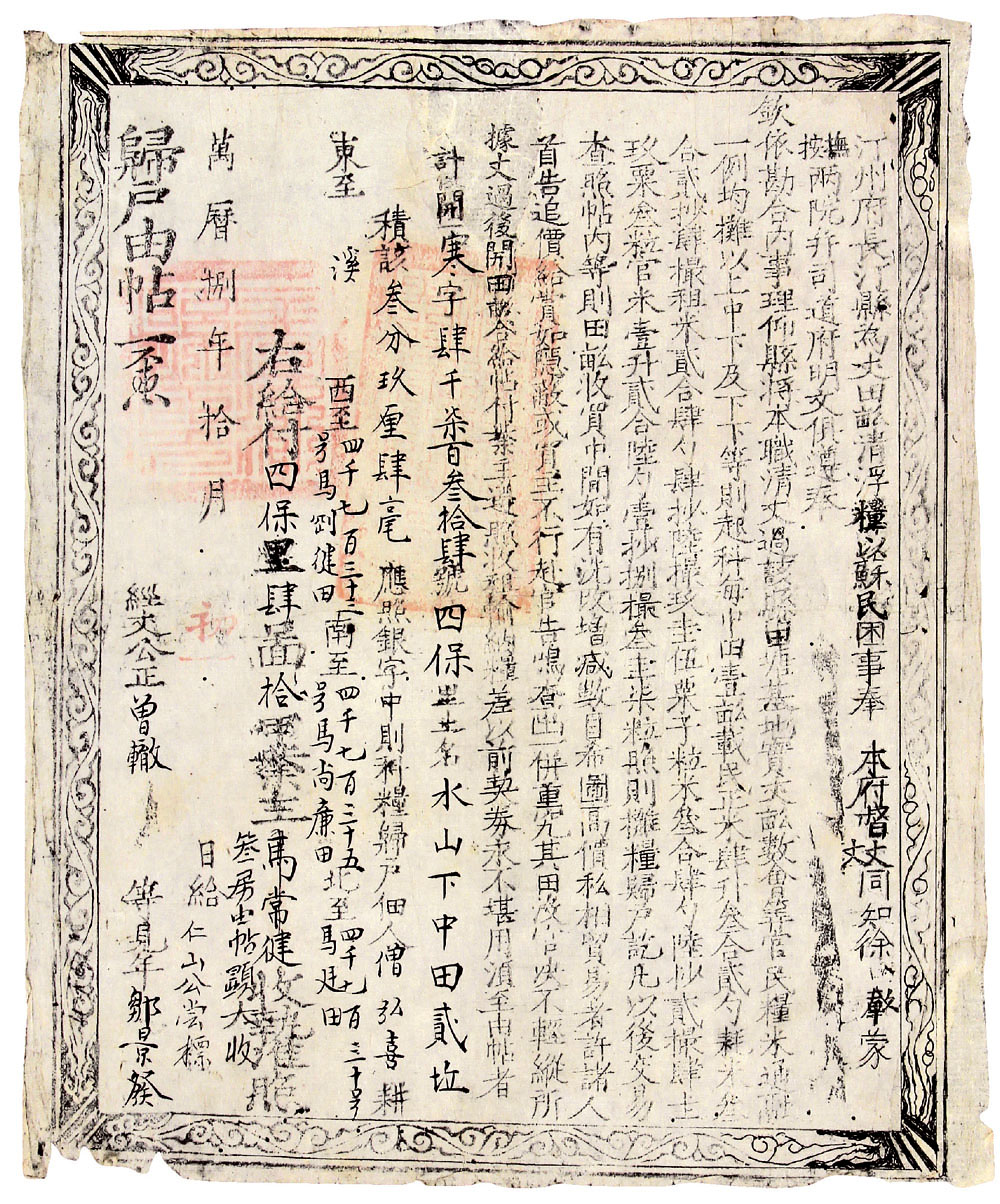 汀州府長汀縣為丈田畝清浮糧以蘇民困事奉 本府督丈同知徐 蒙
撫按兩院并司道府明文俱遵奉
欽依勘合內事理仰縣將本職清丈過該縣田地基地實丈畝數會等官民糧米地畝
一例均攤以上中下及下下等則起科每中田壹畝載民米肆升叁合貳勺耗米
合貳抄肆撮租米貳合肆勺肆抄陸撮玖圭伍粟子粒米叁合肆勺陸抄貳撮肆圭
玖粟叁粒官米壹升貳合陸勺壹抄捌撮叁圭柒粒照則攤糧歸戶訖凡以後交易
查照帖內等則田畝收買中間如有洗改增減數目希圖高價私相貿易者許諸人
首告追價給賞如隱蔽或買主不行赴官告鳴查出一併重究其田沒官決不輕縱所
據丈過後開田畝合給帖付業主遵照收租輸納糧差以前契券永不堪用須至由帖者
計開寒字肆千柒百叁拾肆號四保土名水山下中田貳坵
積該叁分玖厘肆毫 應照銀字中則科糧歸戶佃人僧弘喜耕
東至 溪 西至四千七百三十二號馬釗健田 南至四千七百三十五號馬尚廉田 北至四千七百三十號馬廷田
右給付四保里肆啚拾甲業主馬常健收執准照
叁房由帖顯大收
萬曆捌年拾月初一日給 仁山公嘗標
經丈公正曾轍 等見年鄒景發
歸戶由帖一張